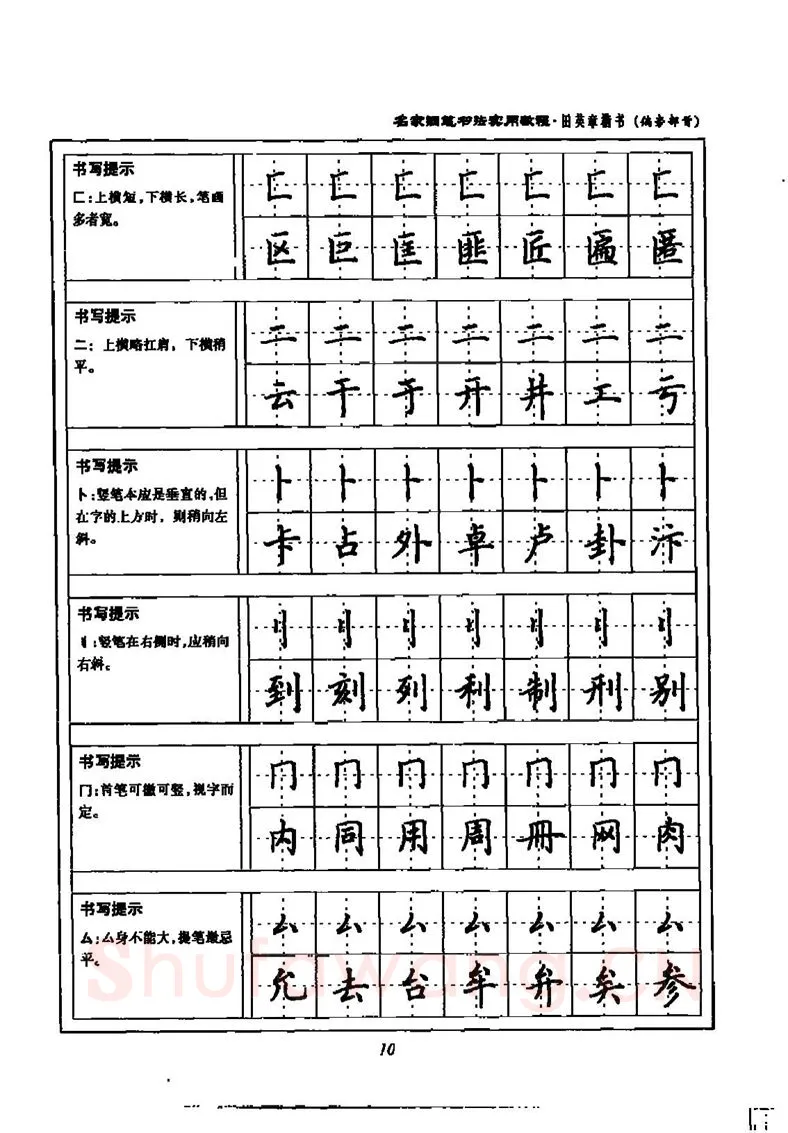 名家钢笔书法实用教程·田英章楷书(偏旁部首)
书写提示
匚:上横短,下横长,笔画
多者宽。
匚 匚 匚 匚 匚 匚 匚
区 巨 匡 匪 匠 匾 匿
书写提示
二: 上横略扛肩, 下横稍
平。
二 二 二 二 二 二 二
云 干 于 开 井 工 亏
书写提示
卜:竖笔本应是垂直的,但
在字的上方时, 则稍向左
斜。
卜 卜 卜 卜 卜 卜 卜
卡 占 外 卓 卢 卦 汴
书写提示
刂:竖笔在右侧时,应稍向
右斜。
刂 刂 刂 刂 刂 刂 刂
到 刻 列 利 制 刑 别
书写提示
冂:首笔可撇可竖,视字而
定。
冂 冂 冂 冂 冂 冂 冂
内 同 用 周 冊 网 肉
书写提示
厶:厶身不能大,提笔最忌
平。
厶 厶 厶 厶 厶 厶 厶
允 去 台 牟 弁 矣 参
Shufawang.CN
10